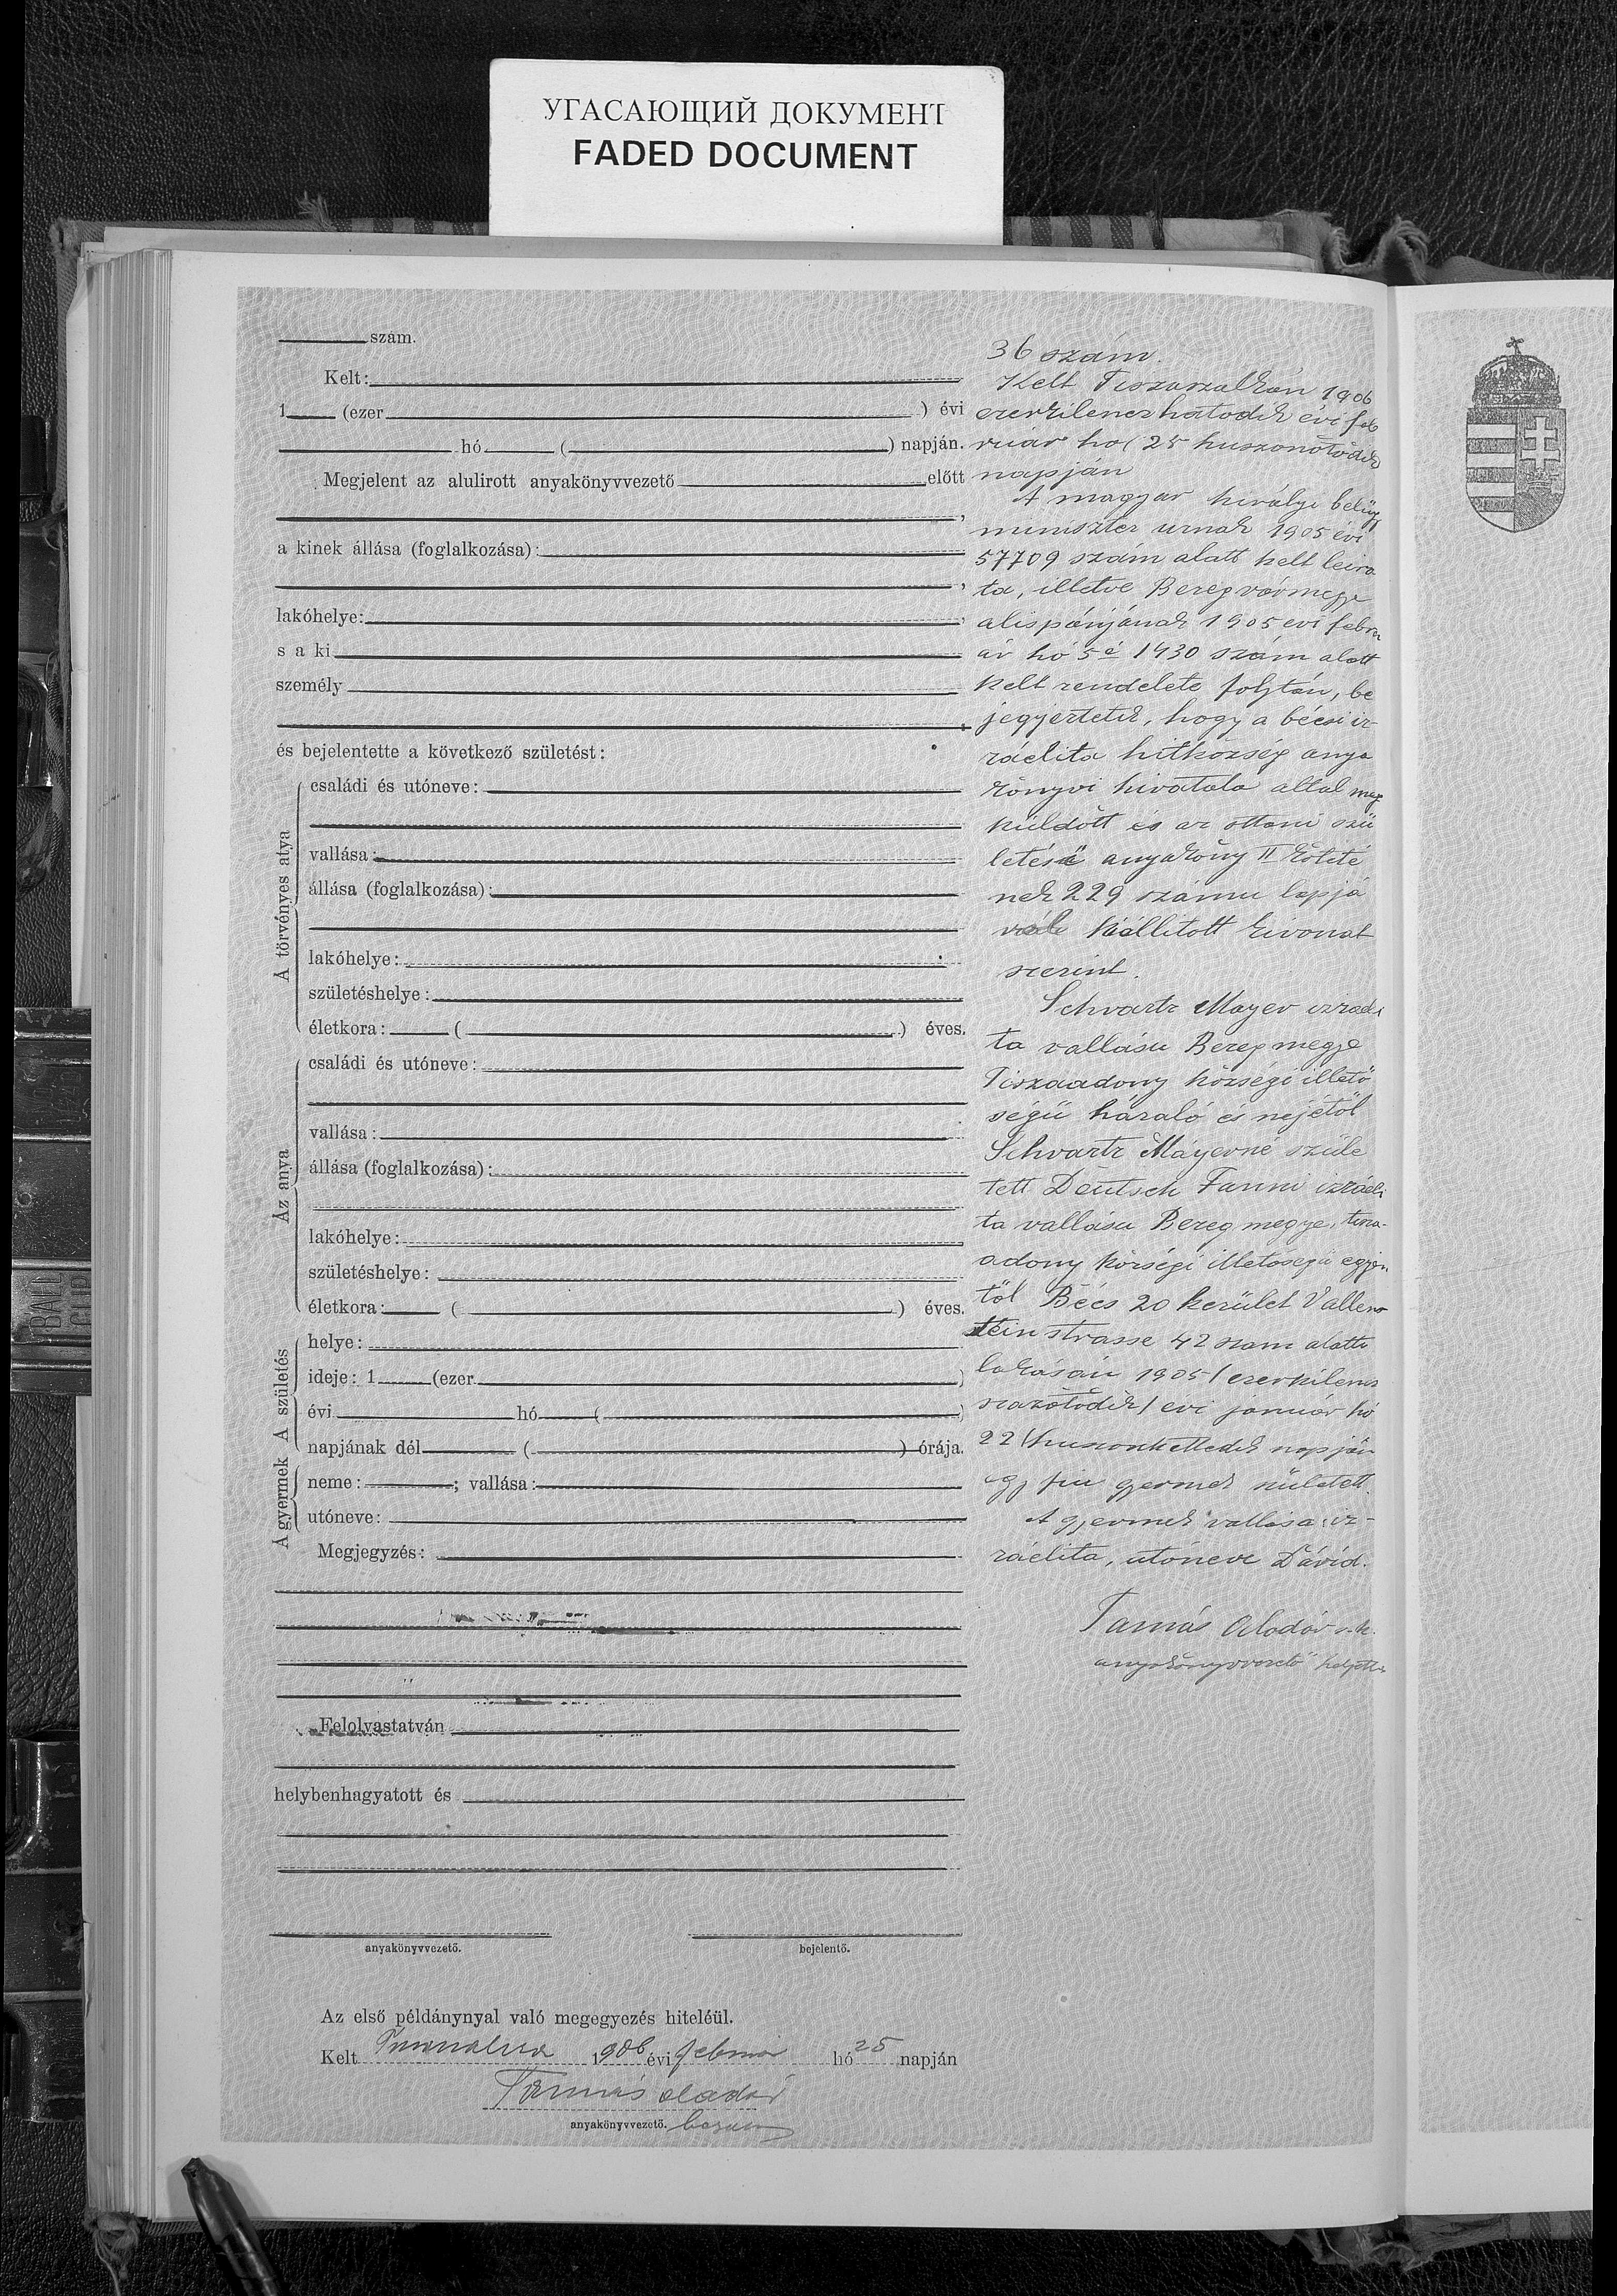 УГАСАЮЩИЙ ДОКУМЕНТ
FADED DOCUMENT
szám.
Kelt:
1 (ezer ) évi
hó ( ) napján.
Megjelent az alulirott anyakönyvvezető előtt
,
a kinek állása (foglalkozása):
,
lakóhelye: ,
s a ki
személy
,
és bejelentette a következő születést:
A törvényes atya
családi és utóneve:
vallása:
állása (foglalkozása):
lakóhelye:
születéshelye:
életkora: ( ) éves.
Az anya
családi és utóneve:
vallása:
állása (foglalkozása):
lakóhelye:
születéshelye:
életkora: ( ) éves.
A születés
helye:
ideje: 1 (ezer )
évi hó ( )
napjának dél ( ) órája.
A gyermek
neme: ; vallása:
utóneve:
Megjegyzés:
Felolvastatván
helybenhagyatott és
anyakönyvvezető. bejelentő.
Az első példánynyal való megegyezés hiteléül.
Kelt 1906 évi február hó 25 napján
Tamás Aladár
anyakönyvvezető.
36 szám.
Kelt Tiszaszalkán 1906
ezerkilenczhatodik évi feb
ruár ho (25 huszonötödik
napján
A magyar királyi belügy
miniszter urnak 1905 évi
57709 szám alatt kelt leira
ta, illetve Bereg vármegye
alispánjának 1905 evi febru
ár hó 5é 1430 szám alatt
kelt rendelete folytán, be
jegyeztetik, hogy a bécsi iz-
ráelita hitközség anya
könyvi hivatala által meg
küldött és az ottani szü
letési anyaköny II köteté
nek 229 számu lapjá
kiállitott kivonat
szerint.
Schvartz Mayer izraeli
ta vallásu Bereg megye
Tiszaadony községi illető
ségü házaló és nejétől
Schvartz Mayerné szüle
tett Deutsch Fanni izráeli
ta vallásu Bereg megye, tisza-
adony községi illetőségü egyén
től Bécs 20 kerület Vallen
stein strasse 42 szam alatti
lakásán 1905/ezerkilencz
százötödik/ évi január hó
22/huszonkettedik napján
egy fiu gyermek született.
A gyermek vallása iz-
ráelita, utóneve Dávid.
Tamás Aladár s.k.
anyakönyvvezető helyettes
BALL
CLIP